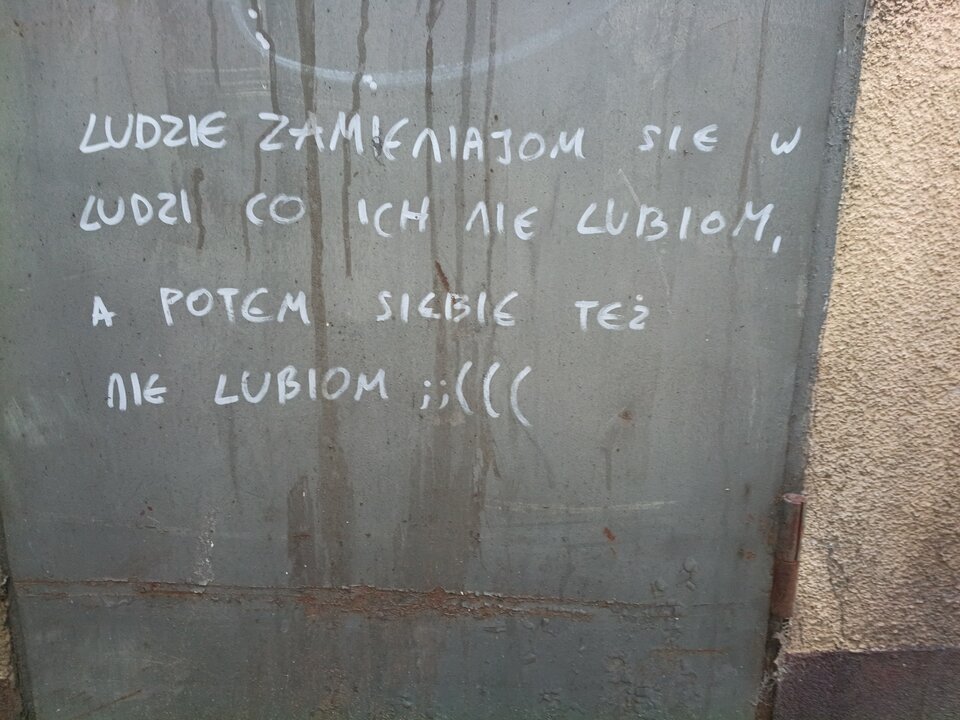 LUDZIE ZAMIENIAJOM SIE W
LUDZI CO ICH NIE LUBIOM,
A POTEM SIEBIE TEŻ
NIE LUBIOM ;;(((